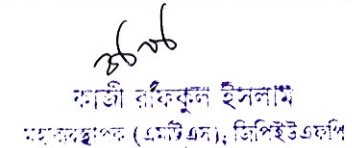 কাজী রফিকুল ইসলাম
মহাব্যবস্থাপক (এমটিএস), জিপিইউএফপি